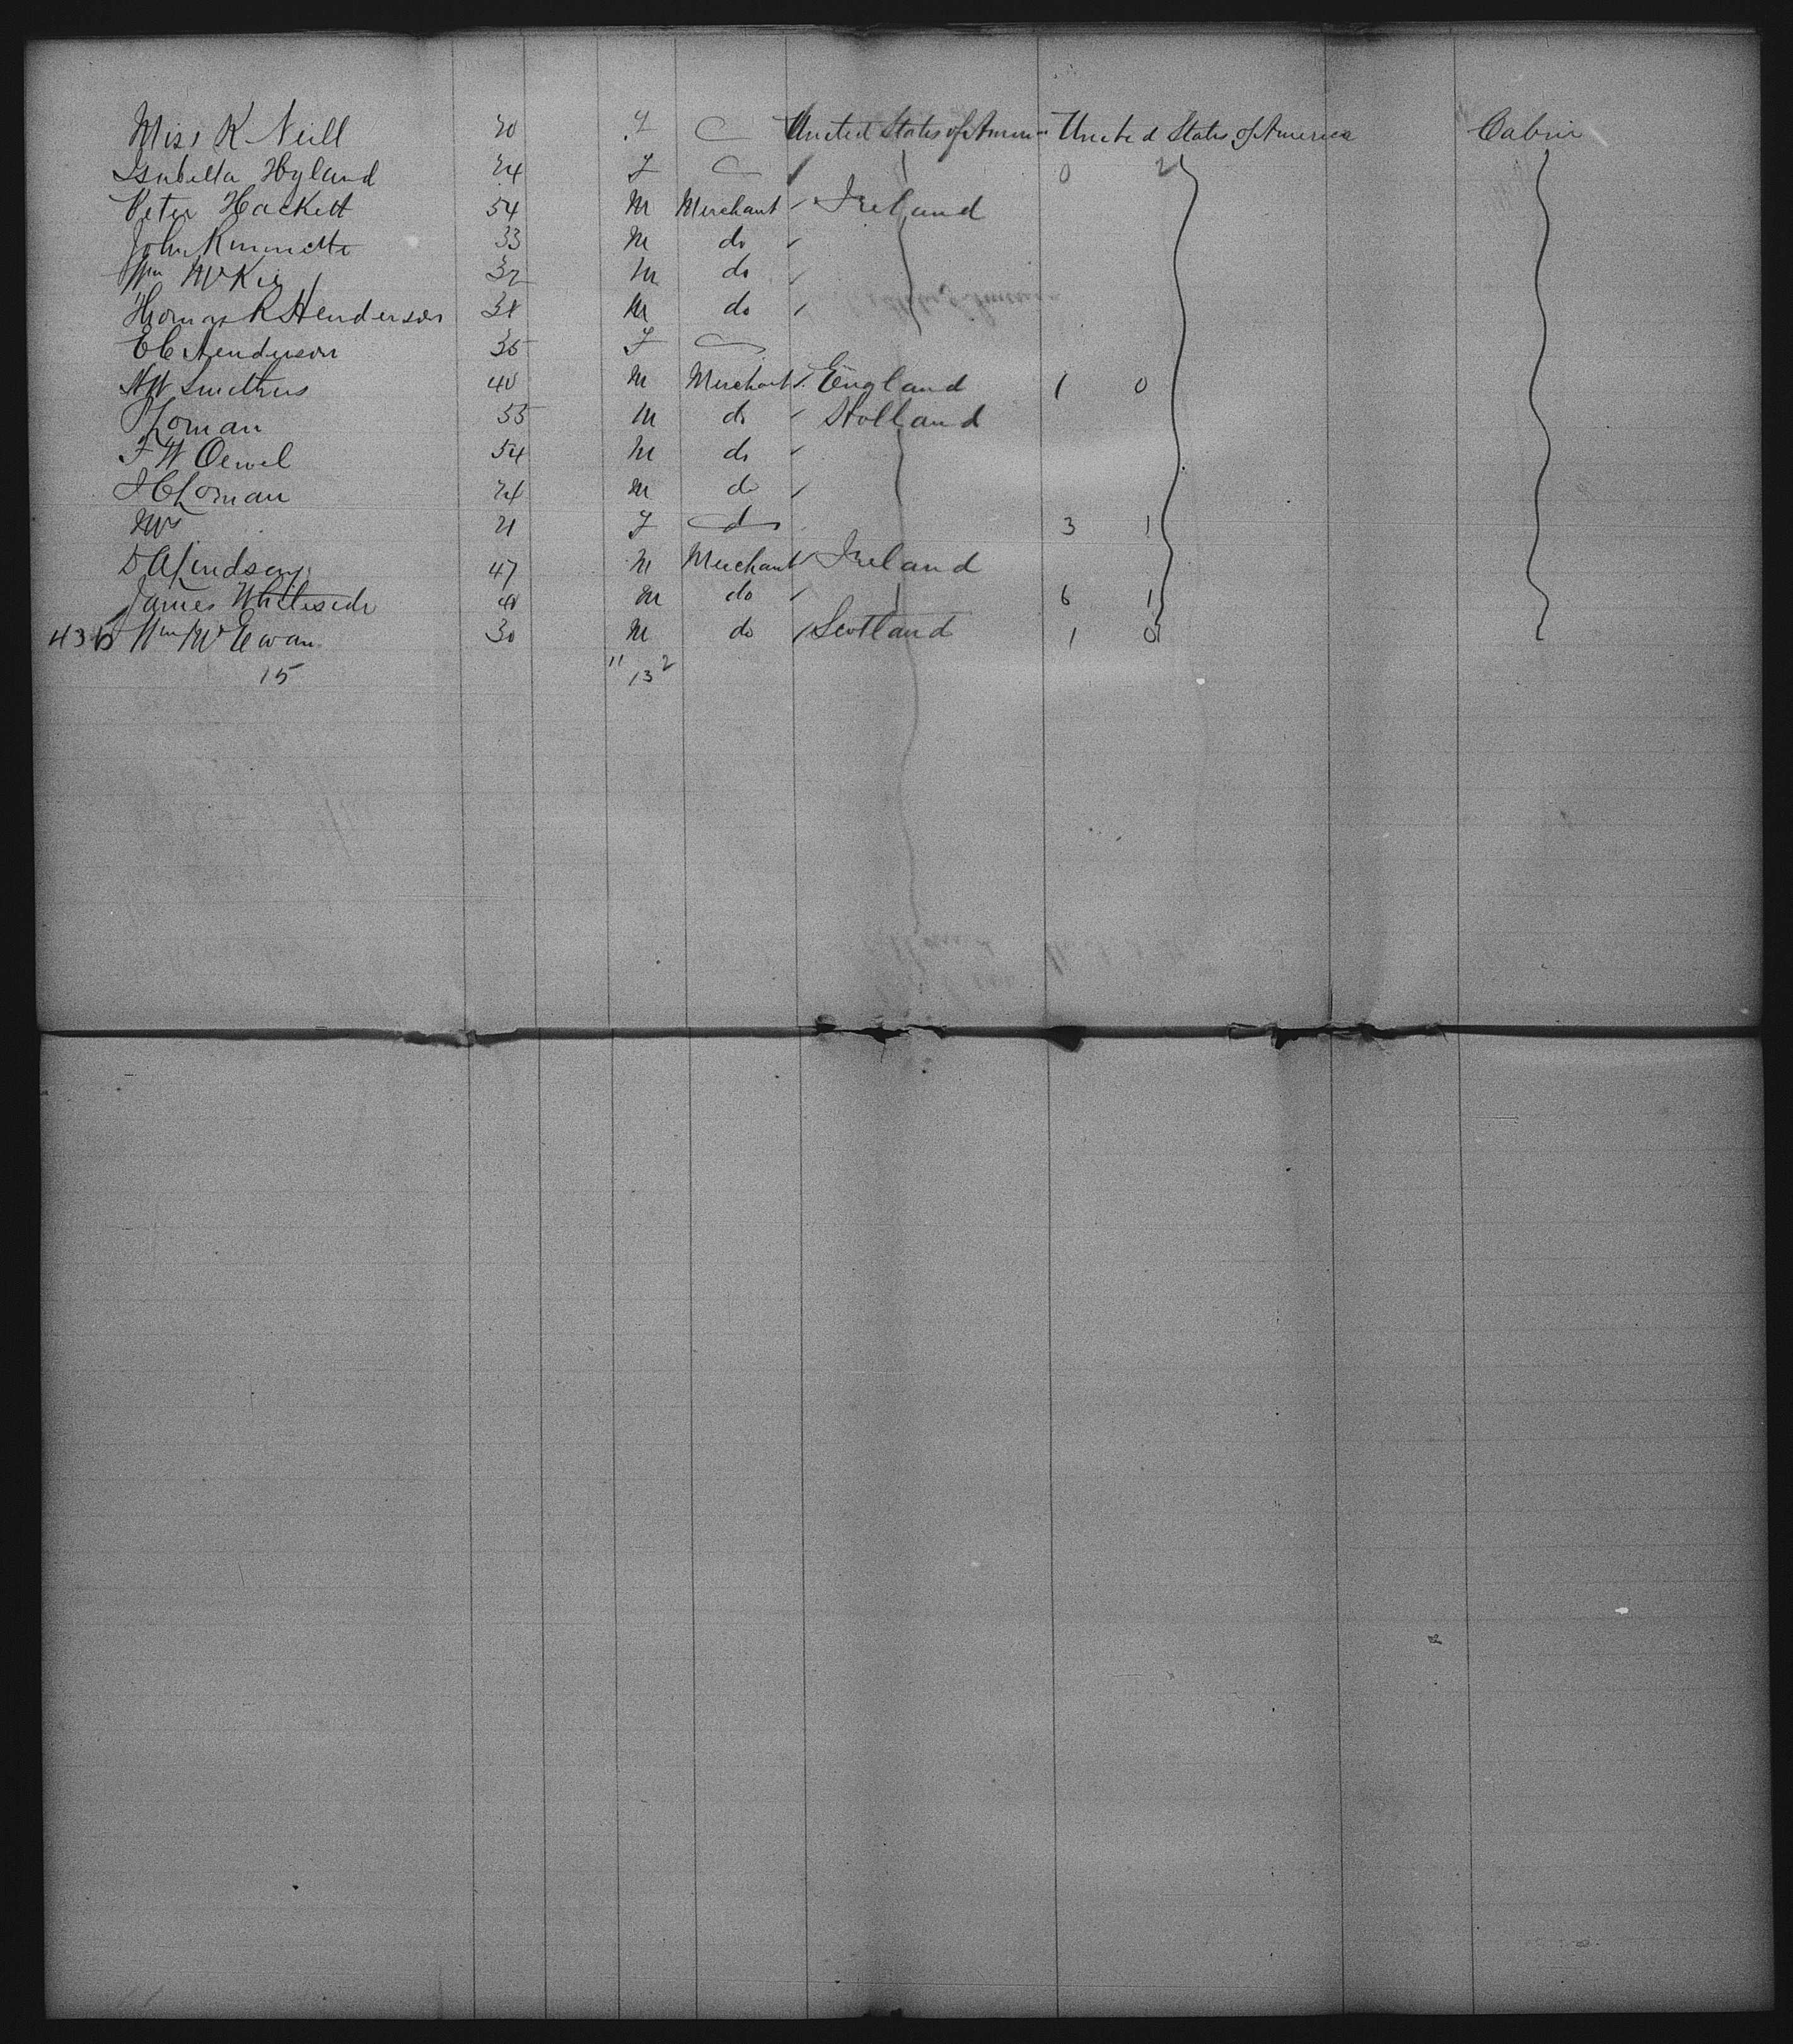 Miss K Neill 20 F United States of Amer United States of America Cabin
Isabella Hyland 24 F 0 2
Peter Hackett 54 M Merchant Ireland
John 33 M do
Wm McKie 32 M do
Thomas R Henderson 38 M do
E C Henderson 35 F
Smithus 40 M Merchant England 1 0
Loman 55 M do Holland
F W Oewel 54 M do
Loman 24 M do
Mrs 21 F do 3 1
D A Lindsay 47 M Merchant Ireland
James Whiteside 48 M do 6 1
436 Wm McEwan 30 M do Scotland 1 0
15 11 13 2